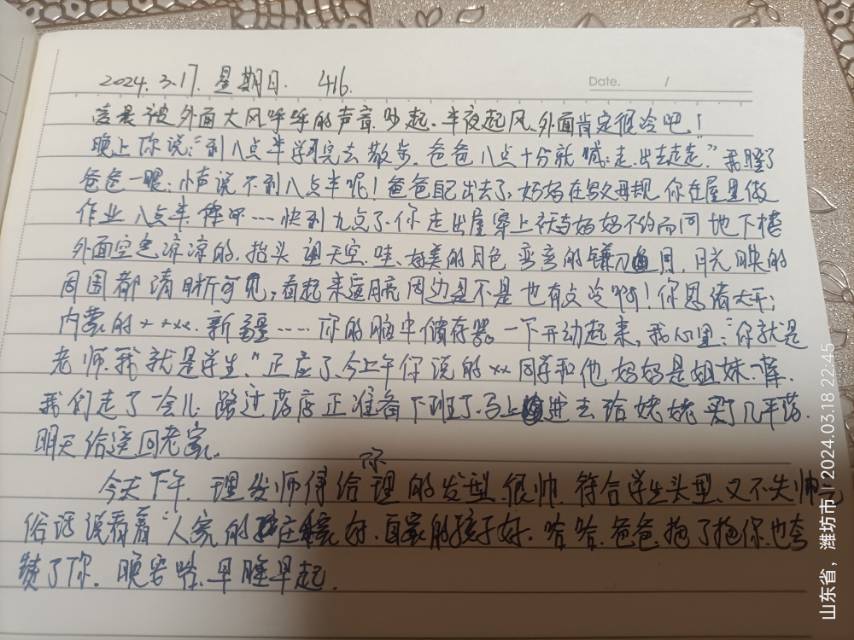 2024.3.17. 星期日. 416.
Date. /
凌晨被外面大风呼呼的声音吵起.半夜起风.外面肯定很冷吧!
晚上你说:"到八点半学习完去散步.爸爸八点十分就喊:走.出去走走."我瞪了
爸爸一眼:小声说不到八点半呢!爸爸自己出去了,妈妈在 你在屋里做
作业八点半 快到九点了.你走出屋穿上袄与妈妈不约而同地下楼
外面空色凉凉的.抬头望天空.哇.好美的月色 弯弯的镰刀 月.月光映的
周围都清晰可见,看起来连月亮周边是不是也有点冷啊!你思绪大开:
内蒙的××××.新疆……你的脑中储存器一下开动起来,我心里:"你就是
老师.我就是学生."正应了.今上午你说的××同学和他妈妈是姐妹.
我们走了一会儿.路过药店正准备下班了.马上 进去给姥姥买了几平药.
明天给送回老家.
今天下午.理发师傅给你理的发型.很帅.符合学生头型.又不失帅
俗话说看着"人家的 庄稼好.自家的孩子好.哈哈.爸爸抱了抱你.也夸
赞了你.晚安啦.早睡早起.
山东省,潍坊市 2024.03.18 22:45